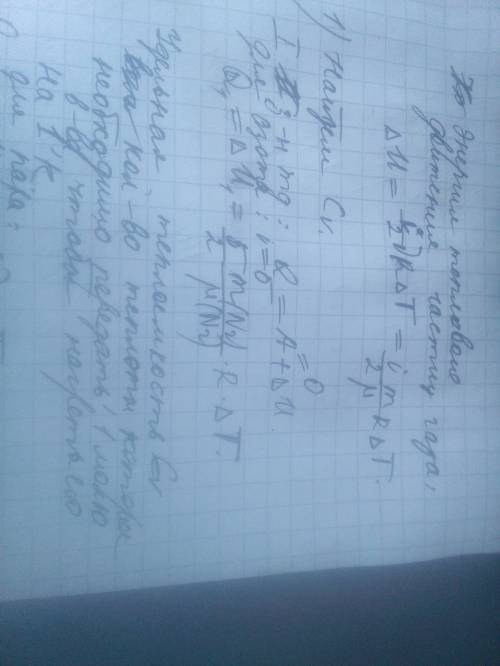 энергия теплового
движения частиц газа,
ΔU = i/2 νRΔT = i/2 m/μ RΔT.
1) Найдем Cv.
I з-н тд: Q = A + ΔU.
= 0
Для азота: i=5
Q₁ = ΔU₁ = 5/2 m(N₂)/μ(N₂) · R · ΔT.
Удельная теплоемкость Cv
кол-во теплоты которое
необходимо передать 1 молю
в-ва чтобы нагреть его
На 1°К
для пара: